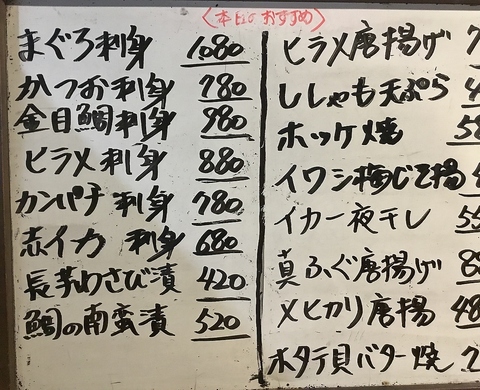 〈本日のおすすめ〉
まぐろ刺身 1,080
かつお刺身 780
金目鯛刺身 980
ヒラメ刺身 880
カンパチ刺身 780
赤イカ刺身 680
長芋わさび漬 420
鯛の南蛮漬 520
ヒラメ唐揚げ
ししゃも天ぷら
ホッケ焼
イワシ梅じそ揚
イカ一夜干し
真ふぐ唐揚げ
メヒカリ唐揚
ホタテ貝バター焼